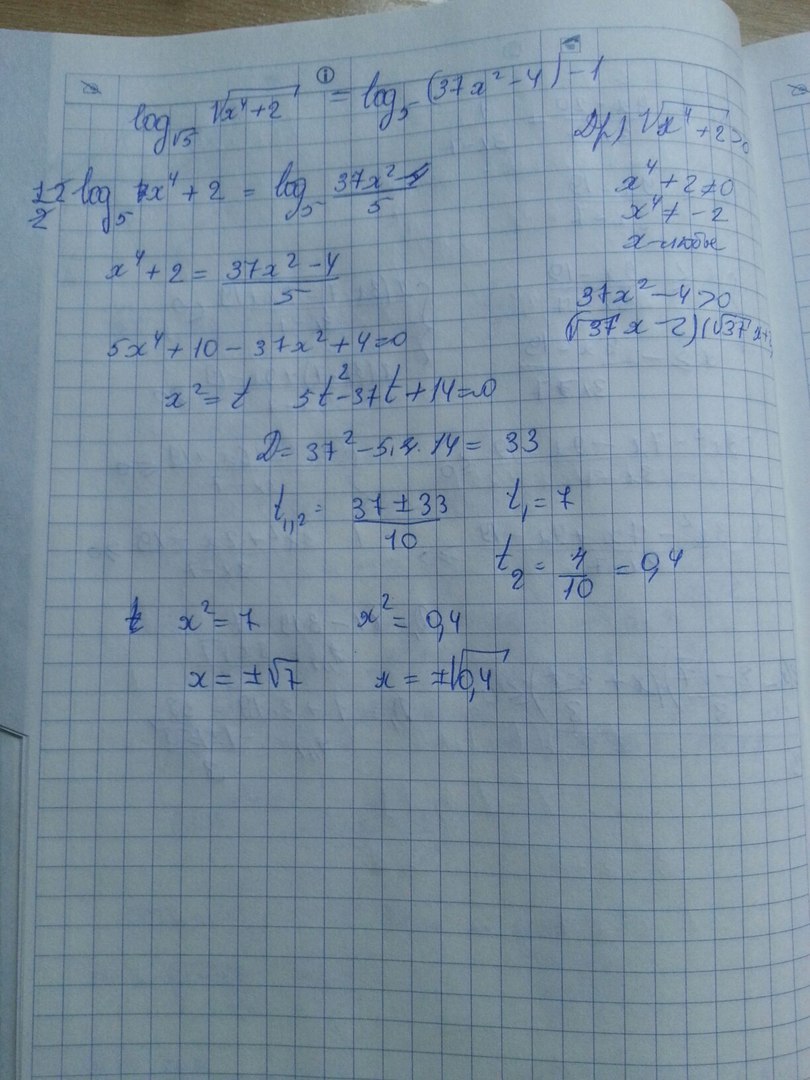 ①
log_√5 √(x⁴+2) = log_5 (37x²-4)-1
Др) √(x⁴+2)>0
x⁴+2≠0
x⁴≠-2
x-любое
37x²-4>0
(√37x-2)(√37x+2
1/2·2 log_5 x⁴+2 = log_5 (37x²-4)/5
x⁴+2 = (37x²-4)/5
5x⁴+10-37x²+4=0
x²=t 5t²-37t+14=0
D=37²-5·4·14= 33
t₁,₂= (37±33)/10 t₁=7
t₂= 4/10 =0,4
x²=7 x²= 0,4
x=±√7 x=±√0,4